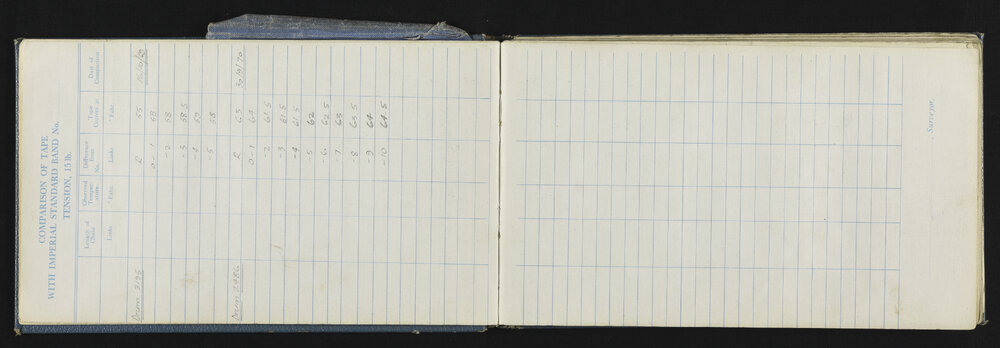 COMPARISON OF TAPE
WITH IMPERIAL STANDARD BAND No.
TENSION, 15 lb.
Length of Chain
Links
Observed Temperature
° Fahr.
Difference from No.
Links
Tape Correct at
° Fahr.
Date of Comparison
R 55
0 - 1 59
- 2 58
- 3 58.5
- 4 57
- 5 58
R 65 30/9/70
0 - 1 64
- 2 61.5
- 3 61.5
- 4 61.5
- 5 62
- 6 62.5
- 7 63
- 8 63.5
- 9 64
- 10 64.5
Surveyor.